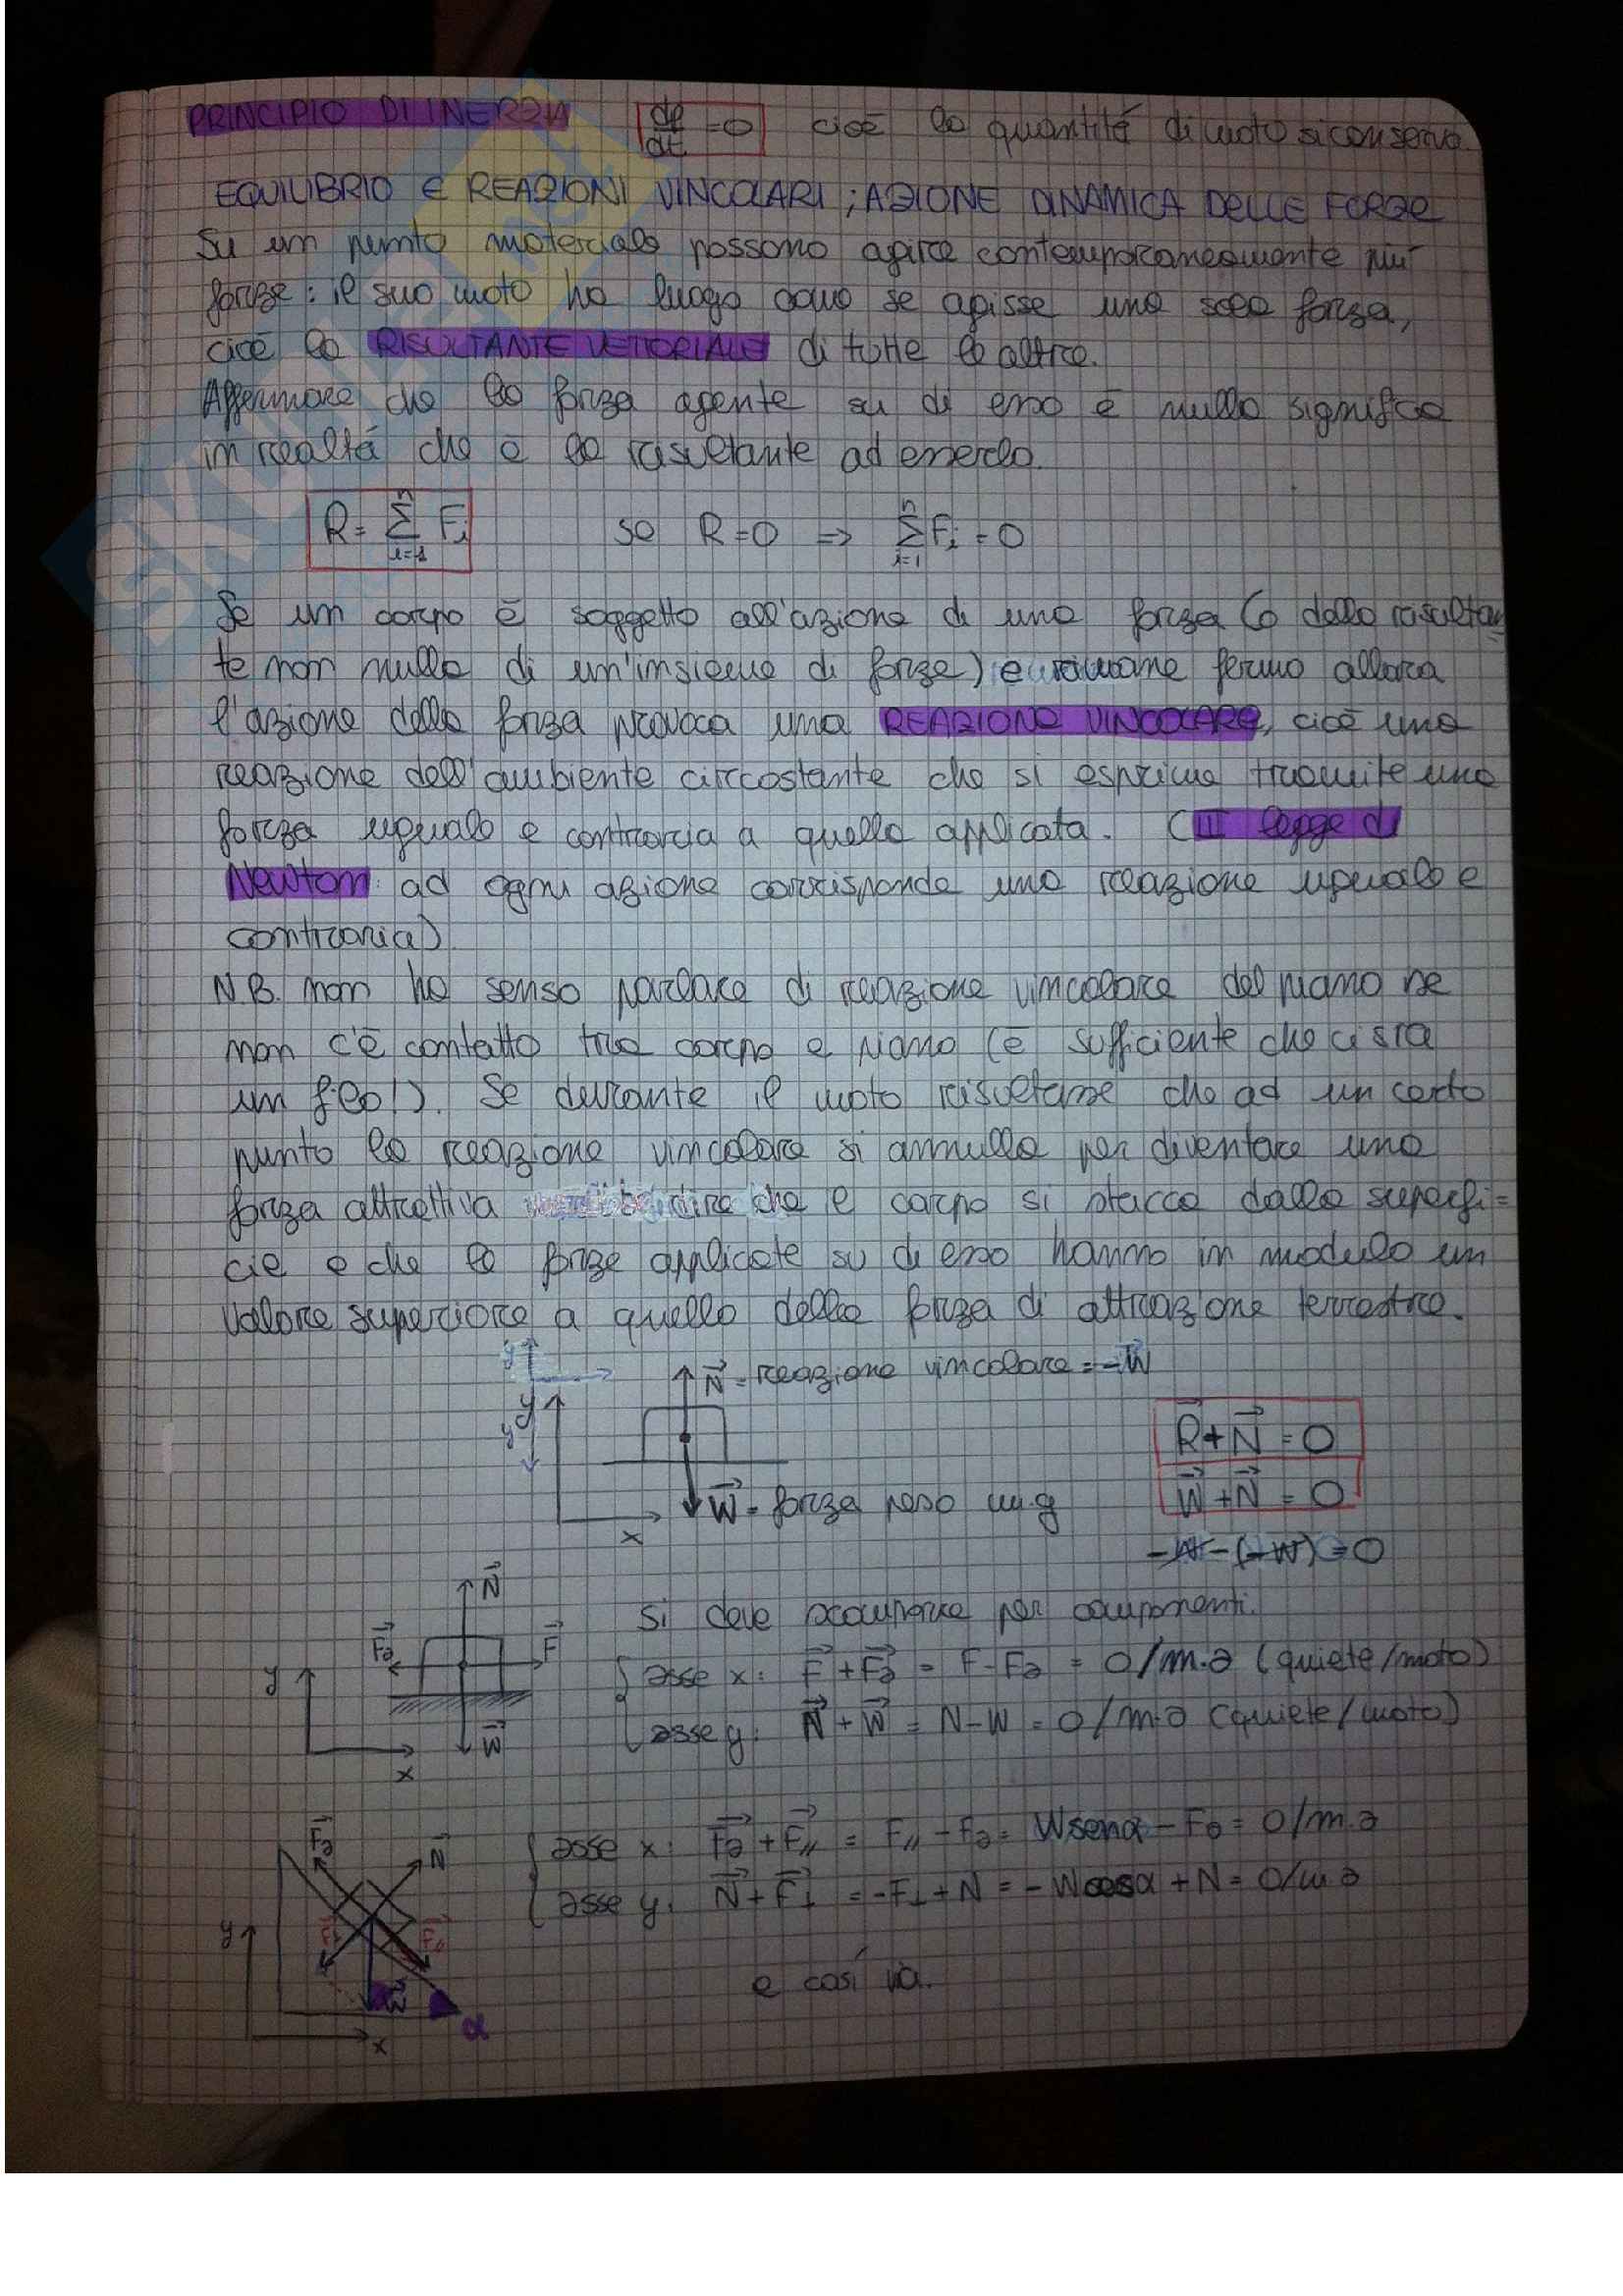 PRINCIPIO DI INERZIA dp/dt = 0 cioè la quantità di moto si conserva
EQUILIBRIO E REAZIONI VINCOLARI; AZIONE DINAMICA DELLE FORZE
Su un punto materiale possono agire contemporaneamente più
forze: il suo moto ha luogo come se agisse una sola forza,
cioè la RISULTANTE VETTORIALE di tutte le altre.
Affermare che la forza agente su di esso è nulla significa
in realtà che è la risultante ad esserlo.
R = Σ i=1 n Fi se R = 0 => Σ i=1 n Fi = 0
Se un corpo è soggetto all'azione di una forza (o della risultan
te non nulla di un'insieme di forze) e rimane fermo allora
l'azione della forza provoca una REAZIONE VINCOLARE, cioè una
reazione dell'ambiente circostante che si esprime tramite una
forza uguale e contraria a quella applicata. (III legge di
Newton: ad ogni azione corrisponde una reazione uguale e
contraria)
N.B. non ha senso parlare di reazione vincolare del piano se
non c'è contatto tra corpo e piano (è sufficiente che ci sia
un filo!). Se durante il moto risultasse che ad un certo
punto la reazione vincolare si annulla per diventare una
forza attrattiva dire che il corpo si stacca dalla superfi=
cie e che le forze applicate su di esso hanno in modulo un
valore superiore a quello della forza di attrazione terrestre.
y
N = reazione vincolare = -W
y
y
R + N = 0
W + N = 0
W = forza peso m·g
x
-W - (-W) = 0
N
si deve scomporre per componenti.
Fa F
y
asse x: F + Fa = F - Fa = 0/m·a (quiete/moto)
asse y: N + W = N - W = 0/m·a (quiete/moto)
W
x
Fa N
asse x: Fa + F// = F// - Fa = W senα - Fa = 0/m·a
asse y: N + F⊥ = -F⊥ + N = - W cosα + N = 0/m·a
y F⊥ F//
e così via.
W
α
x